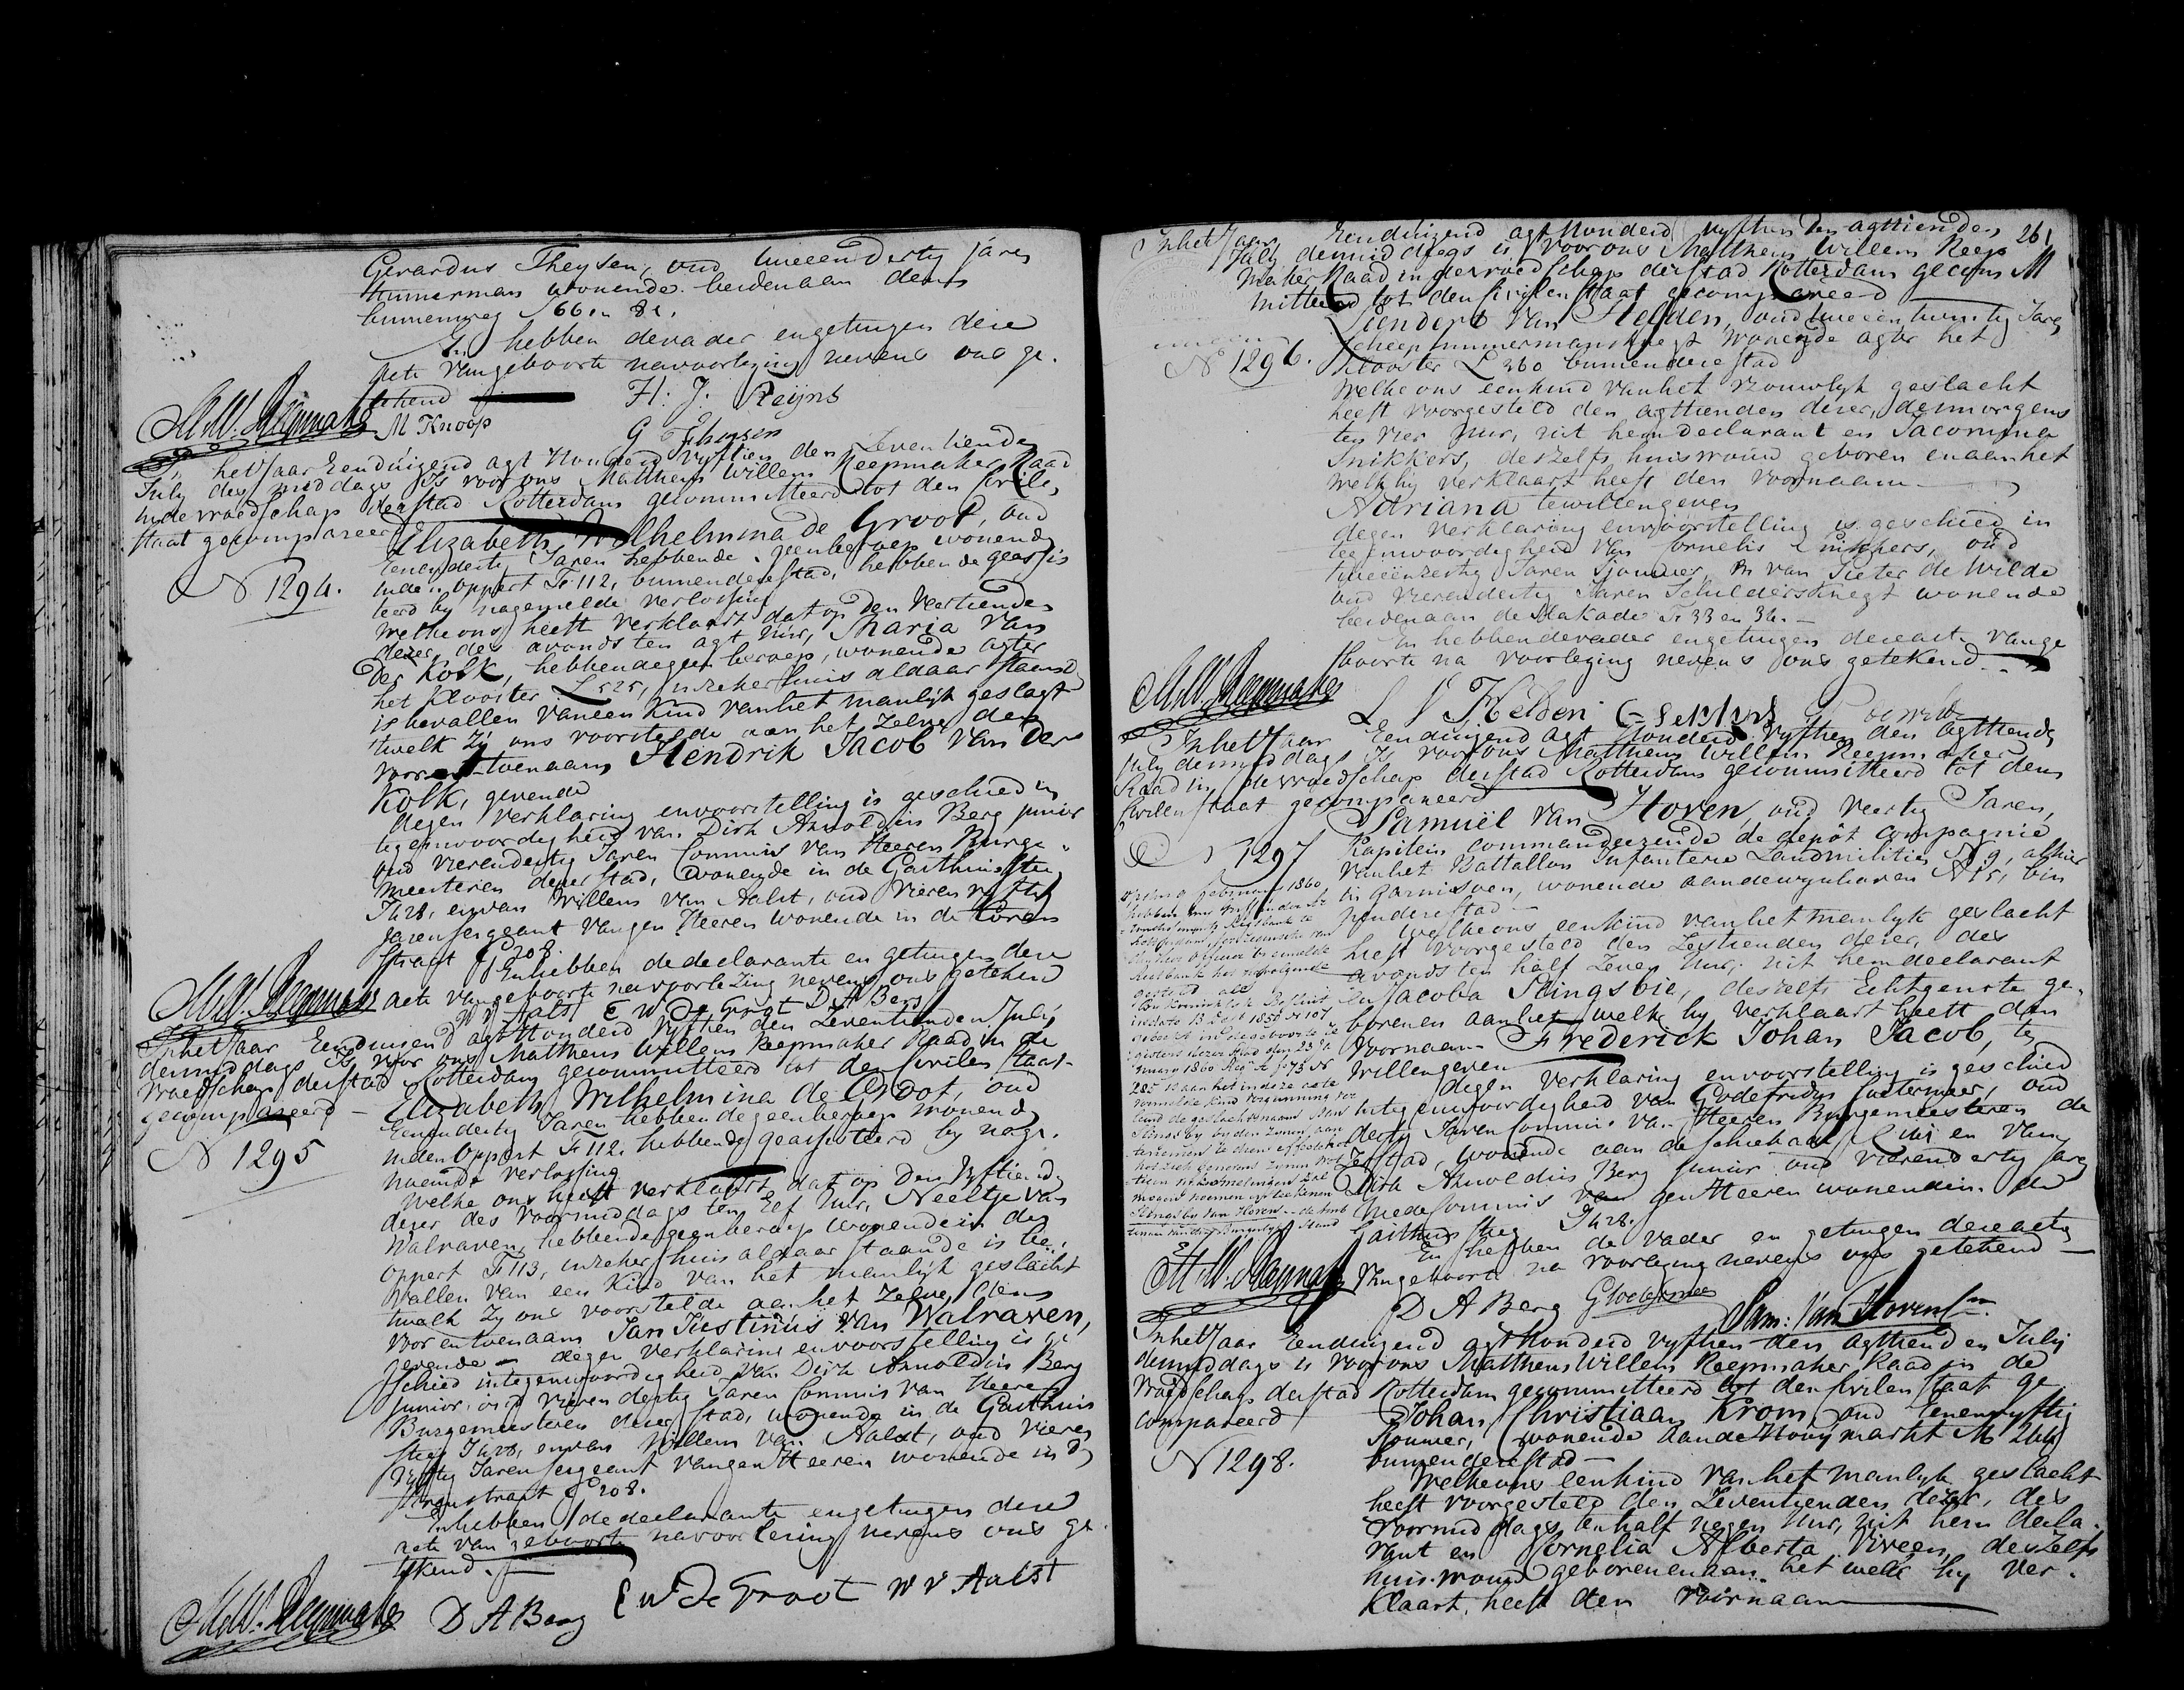 Gerardus Theysen, oud tweeendertig jaren
timmerman wonende beiden aan den
binnenweg S 66 en 81.
En hebben de vader en getuigen deze
acte van geboorte na voorlezing nevens ons ge-
tekend H: J. Reijns
MW. Reepmaker M Knoop
G Theysen
In het Jaar Eenduizend agt Honderd Vyftien den Zeventienden
July des middags Is voor ons Mattheus Willem Reepmaker Raad
in de vroedschap der stad Rotterdam gecommitteerd tot den Civilen
staat gecompareerd
Elizabeth Wilhelmina de Groot, oud
Eenendertig Jaren hebbende geen beroep wonende
N 1294. in den oppert F 112, binnen deze stad, hebbende geassis
teerd by nagemelde verlossing
Welke ons heeft verklaart dat op den Veertienden
dezer, des avonds ten agt Uur, Maria van
der Kolk, hebbende geen beroep, wonende agter
het Klooster L 525, in zeker huis aldaar staande
is bevallen van een Kind van het manlyk geslagt
twelk Zy ons voorstelde aan het zelve den
voor en toenaam Hendrik Jacob van der
Kolk, gevende
degen verklaring en voorstelling is geschied in
tegenwoordigheid van Dirk Arnoldus Berg junior
oud vierendertig Jaren Commis van Heeren Burge-
meesteren dezer stad, wonende in de Gasthuissteeg
I 428, en van Willem van Aalst, oud Vieren vyftig
jaren sergeant van gen Heeren wonende in de Toren
straat G 208.
En hebben de declarante en getuigen deze
MW. Reepmaker acte van geboorte na voorlezing nevens ons getekend
W v Aalst E W De Groot D A Berg
In het Jaar Eenduizend agt Honderd Vyftien den Zeventienden July
des middags Is voor ons Mattheus Willem Reepmaker Raad in de
Vroedschap der stad Rotterdam gecommitteerd tot den Civilen staat
gecompareerd -
Elizabeth Wilhelmina de Groot, oud
Eenendertig Jaren hebbende geen beroep wonende
N 1295 in den Oppert F 112, hebbende geassisteerd by nage-
noemde verlossing
Welke ons heeft verklaart dat op den Vyftienden
dezer des Voormiddags ten Elf Uur, Neeltje van
Walraven, hebbende geen beroep wonende in den
oppert F 113, in zeker huis aldaar staande is be-
vallen van een Kind van het manlyk geslacht
twelk Zy ons voorstelde aan het Zelve den
voor en toenaam Jan Justinus van Walraven,
gevende - degen verklaring en voorstelling is ge
schied in tegenwoordigheid van Dirk Arnoldus Berg
junior, oud vierendertig Jaren Commis van Heeren
Burgemeesteren dezer stad, wonende in de Gasthuis
steeg I 428, en van Willem van Aalst, oud Vieren
Vyftig Jaren sergeant van gen Heeren wonende in de
Torenstraat G 208.
En hebben de declarante en getuigen deze
acte van geboorte na voorlezing nevens ons ge-
tekend.
MW. Reepmaker D A Berg E W De Groot W v Aalst
261
In het Jaar Eenduizend agt Honderd vyftien den agttienden
July des middags is voor ons Mattheus Willem Reep
maker Raad in de vroedschap der stad Rotterdam gecom
mitteerd tot den Civilen staat gecompareerd
Leendert van Helden, oud tweeen twintig Jaren
scheepstimmermansknegt wonende agter het
N 1296. Klooster L 360 binnen deze stad
Welke ons een kind van het vrouwlyk geslacht
heeft voorgesteld den agttienden dezer, des morgens
ten vier Uur, uit hem declarant en Jacomina
Snikkers, deszelfs huisvrouw geboren en aan het
welk hy verklaart heeft den voornaam
Adriana te willen geven
degen verklaring en voorstelling is geschied in
tegenwoordigheid van Cornelis Snikkers, oud
tweeenzestig Jaren Sjouwer, en van Pieter de Wilde
oud vierendertig Jaren Schildersknegt wonende
beiden aan de Blakade F 33 en 34. -
En hebben de vader en getuigen deze acte van ge
boorte na voorlezing nevens ons getekend
MW. Reepmaker
L V Helden
In het Jaar Eenduizend agt Honderd Vyftien den agttienden
July des middags Is voor ons Mattheus Willem Reepmaker
Raad in de vroedschap der stad Rotterdam gecommitteerd tot den
Civilen staat gecompareerd
Samuël van Hoven, oud Veertig Jaren,
N 1297 Kapitein commandeerende de depôt Compagnie
van het Battallon Infanterie Landmilitie N 9, alhier
in garnisoen, wonende aan de wynhaven N 15, bin
nen deze stad -
Welke ons een kind van het manlyk geslacht
heeft voorgesteld den Zestienden dezer, des
avonds ten half Zeven Uur, uit hem declarant
en Jacoba Slingsbie, deszelfs Echtgenote ge-
boren en aan het welk hy verklaart heeft den
voornaam Frederick Johan Jacob, te
willen geven
degen verklaring en voorstelling is geschied
in tegenwoordigheid van Godefridus Soetermeer, oud
dertig Jaren Commis van Heeren Burgemeesteren de
zer stad, wonende aan de schiekade en van
Dirk Arnoldus Berg Junior oud vierendertig jaren
mede Commis van gen Heeren wonende in de
Gasthuissteeg I 428.
En hebben de vader en getuigen deze acte
van geboorte na voorlezing nevens ons getekend
MW. Reepmaker
D A Berg G Soetermeer
Sam: Van Hoven
In het Jaar Eenduizend agt Honderd vyftien den agttienden July
des middags is voor ons Mattheus Willem Reepmaker Raad in de
Vroedschap der stad Rotterdam gecommitteerd tot den Civilen staat ge
compareerd
Johan Christiaan Krom, oud Eenenvyftig
Sjouwer, wonende aan de Hooymarkt M 244
N 1298. binnen deze stad -
Welke ons een kind van het manlyk geslacht
heeft voorgesteld den Zeventienden dezer, des
voormiddags ten half negen Uur, uit hem decla-
rant en Cornelia Alberta Vireen, deszelfs
huisvrouw geboren en aan het welk hy ver-
klaart heeft den voornaam